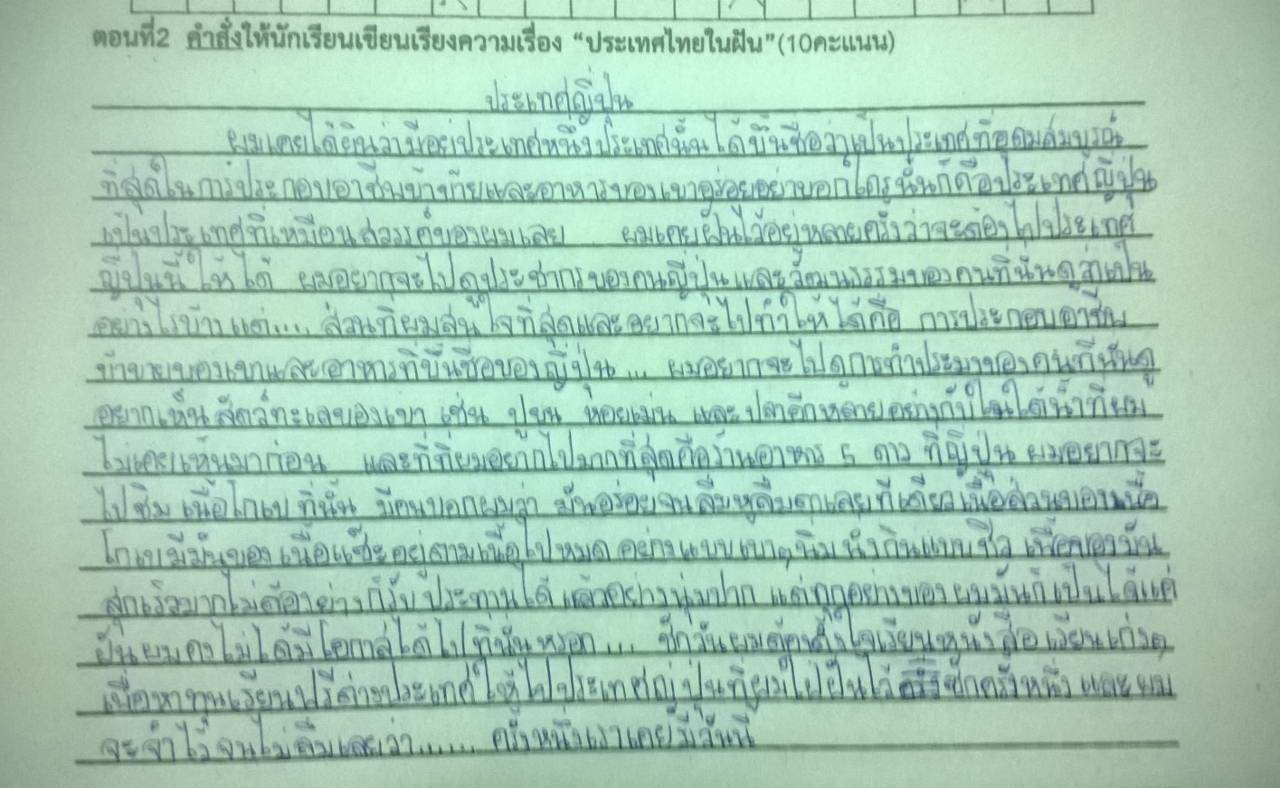 ตอนที่2 คำสั่งให้นักเรียนเขียนเรียงความเรื่อง “ประเทศไทยในฝัน”(10คะแนน)
ประเทศญี่ปุ่น
ผมเคยได้ยินว่ามีอยู่ประเทศหนึ่งประเทศนั้นได้ขึ้นชื่อว่าเป็นประเทศที่อุดมสมบูรณ์
ที่สุดในการประกอบอาชีพค้าขายและอาหารของเขาอร่อยอย่าบอกใครนั่นก็คือประเทศญี่ปุ่น
เป็นประเทศที่เหมือนสวรรค์ของผมเลย ผมเคยฝันไว้อยู่หลายครั้งว่าจะต้องไปประเทศ
ญี่ปุ่นนี้ให้ได้ ผมอยากจะไปดูประชากรของคนญี่ปุ่นและวัฒนธรรมของคนที่นั่นดูว่าเป็น
อย่างไรบ้างแต่.... ส่วนที่ผมสนใจที่สุดและอยากจะไปทำให้ได้คือ การประกอบอาชีพ
ค้าขายของเขาและอาหารที่ขึ้นชื่อของญี่ปุ่น... ผมอยากจะไปดูการทำประมงของคนที่นั่นดู
อยากเห็นสัตว์ทะเลของเขา เช่น ปูขน หอยเม่น และปลาอีกหลายอย่างที่ผม
ไม่เคยเห็นมาก่อน และที่ที่ผมอยากไปมากที่สุดคือร้านอาหาร 5 ดาว ที่ญี่ปุ่น ผมอยากจะ
ไปชิมเนื้อโกเบที่นั่น มีคนบอกผมว่า มันอร่อยจนลืมหูลืมตาเลยทีเดียวเนื้อส่วนของเนื้อ
โกเบมีมันของเนื้อแซะอยู่ตามเนื้อไปหมด อย่างแบบเบาๆนิ่ม เนื้อของมัน
สุกเร็วมากไม่ต้องย่างก็รับประทานได้ แล้วอย่างนุ่มปาก แต่ทุกอย่างของผมมันก็เป็นได้แค่
ฝันผมคงไม่ได้มีโอกาสได้ไปที่นั่นหรอก... ซักวันผมต้องตั้งใจเรียนหนังสือ เรียนเก่งๆ
เพื่อหาทุนเรียนฟรีต่างประเทศให้ไปประเทศญี่ปุ่นที่ผมใฝ่ฝันไว้ ซักครั้งหนึ่ง และผม
จะจำไว้จนไม่ลืมเลยว่า...... ครั้งหนึ่งเราเคยมีวันนี้